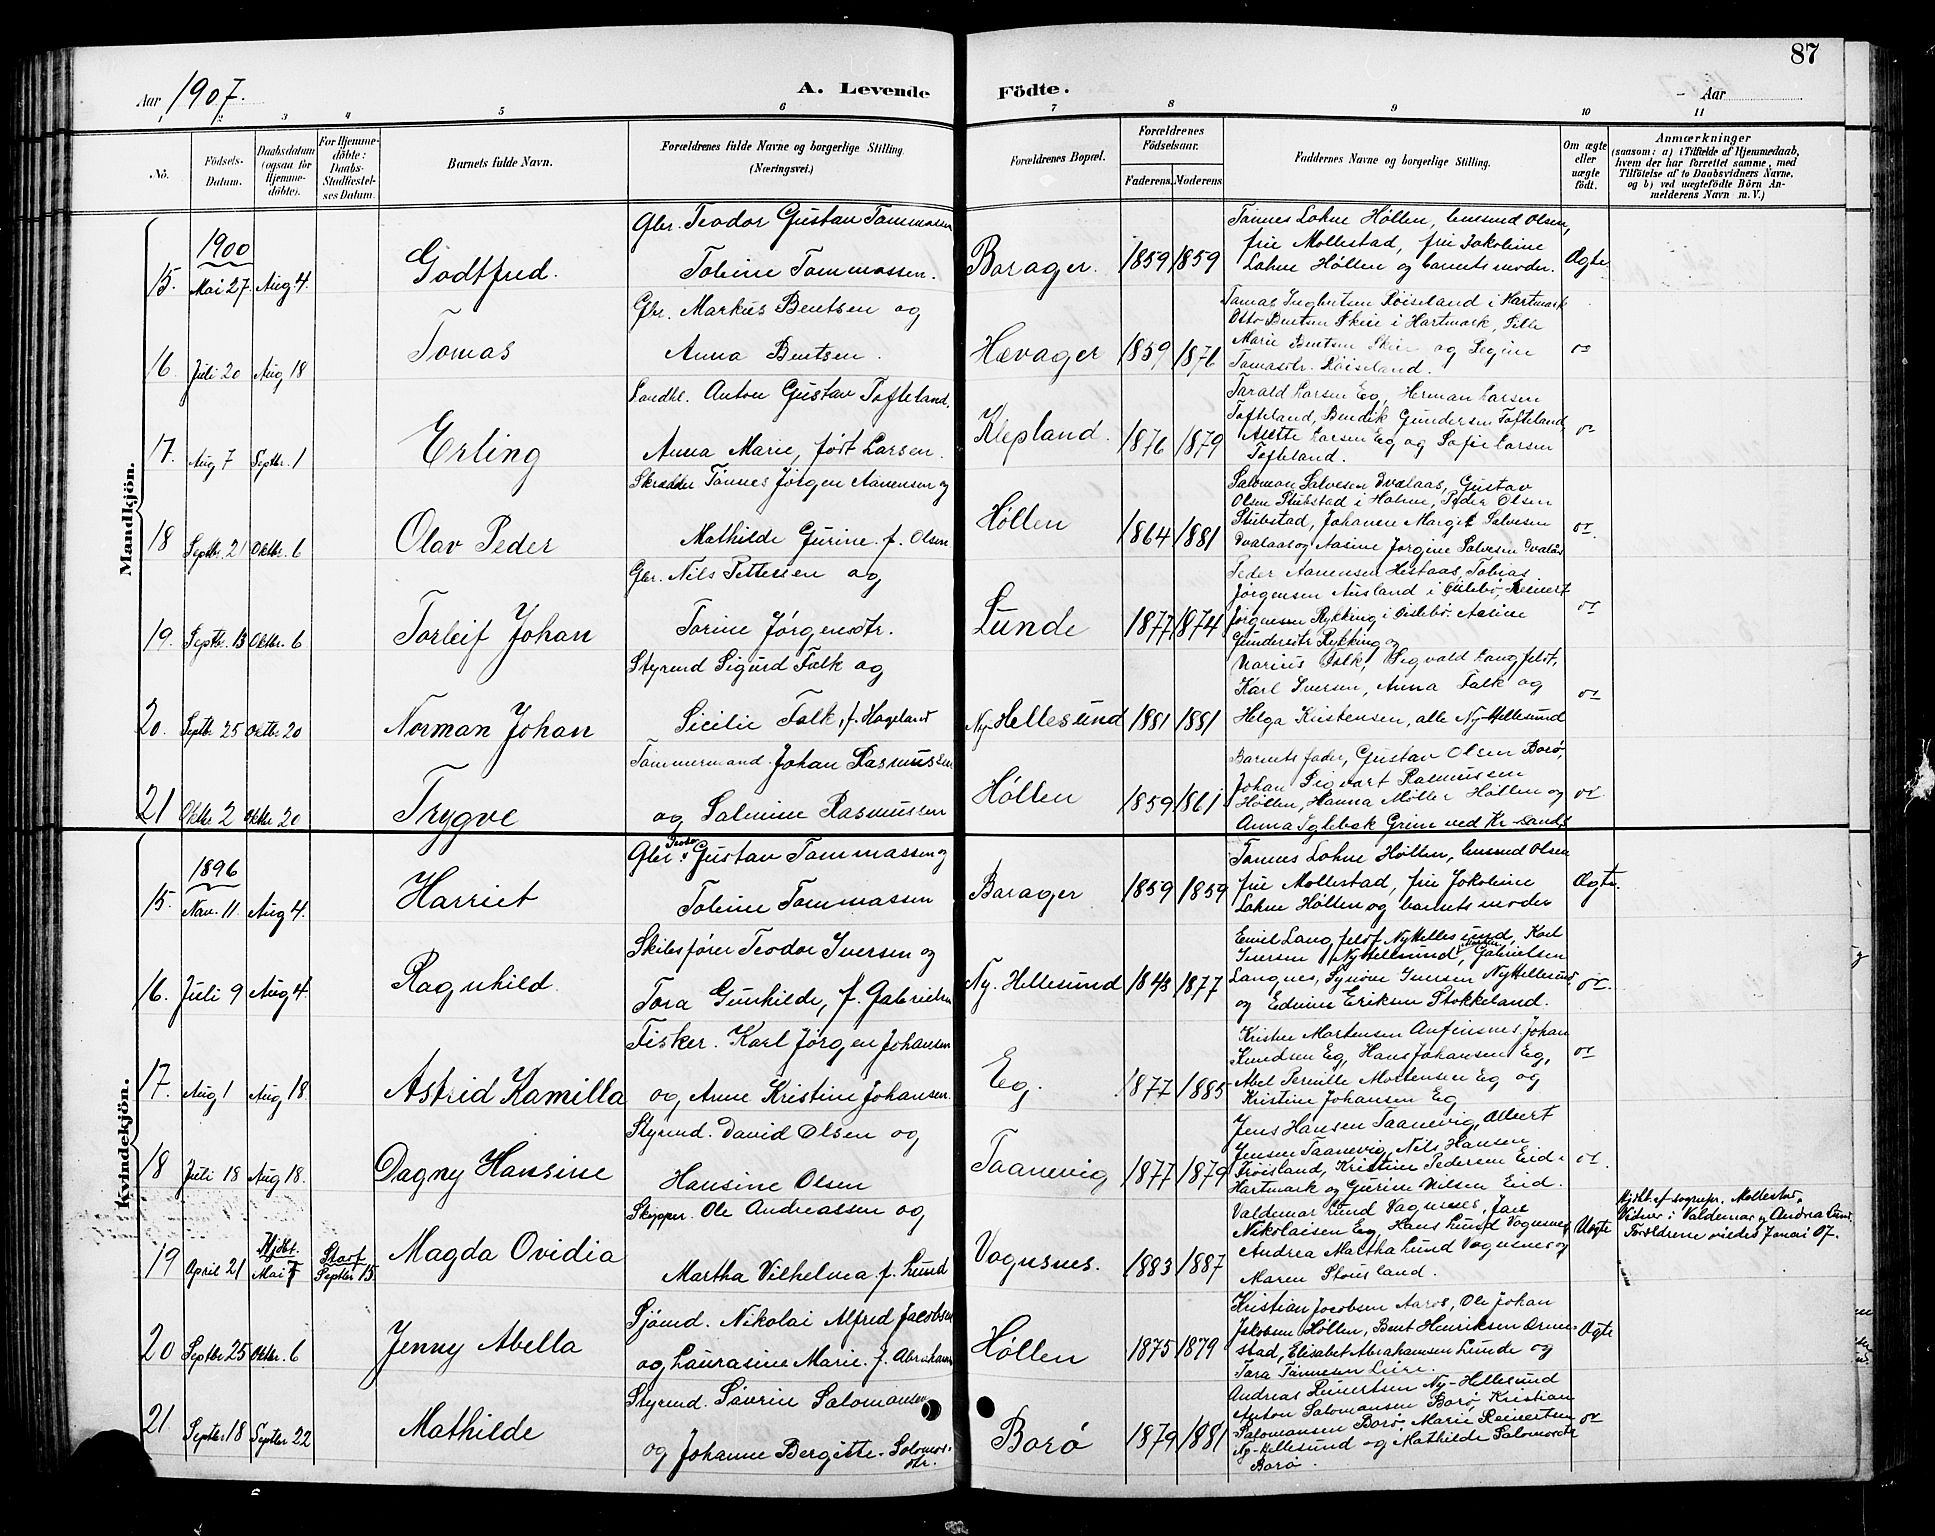 87
Aar 1907. A. Levende Födte. Aar
1 2 3 4 5 6 7 8 9 10 11
No. Födsels-Datum. Daabsdatum (ogsaa för Hjemme-döbte). For Hjemme-döbte: Daabs-Stadfæstel-ses Datum. Barnets fulde Navn. Forældrenes fulde Navne og borgerlige Stilling. (Næringsvei.) Forældrenes Bopæl. Forældrenes Födselsaar. Faderens. Moderens. Faddernes Navne og borgerlige Stilling. Om ægte eller uægte födt. Anmærkninger (saasom: a) i Tilfælde af Hjemmedaab, hvem der har forrettet samme, med Tilföielse af to Daabsvidners Navne, og b) ved uægtefödte Börn An-melderens Navn m. V.)
Mandkjön.
1900
15. Mai 27 Aug 4. Godtfred. Gbr. Teodor Gustav Tommassen
Tobine Tommassen. Borager. 1859 1859 Tønnes Lohne Høllen, Olsen,
frú Mollestad, frú Jakobine
Lohne Høllen og barnets moder. Ægte
16. Juli 20 Aug 18 Tomas Gbr. Markus Bentsen og
Anna Bentsen. Hævager 1859 1876 Tomas Røiseland i Hartmark
Otto Bentsen Skeie i Hartmark,
Marie Bentsen Skeie og
Tomasdtr. Røiseland.
17. Aug 7 Septbr. 1 Erling Anton Gustav Tofteland.
Anna Marie, født Larsen. Klepland. 1876 1879 Tarald Larsen Eg, Herman Larsen
Tofteland, Bendik Gundersen Tofteland
Larsen Eg og Sofie Larsen
Tofteland.
18 Septbr. 21 Oktbr. 6 Olav Peder Skrædder Tønnes Jørgen Aanensen og
Mathilde Gurine f. Olsen Høllen 1864 1881 Salomon Salvesen Dvalaas, Gustav
Olsen Stubstad i Holme, Peder Olsen
Stubstad, Johanne Margit Salvesen
Dvalaas og Aasine Jørgine Salvesen Dvalås
19. Septbr. 13 Oktbr. 6 Torleif Johan Gbr. Nils Pettersen og
Torine Jørgensdtr. Lunde 1877 1874 Peder Aanensen Hestaas, Tobias
Jørgensen Ausland i Øislebø,
Jørgensen Rykking i Øislebø Aasine
Gundersdtr Rykking og
20. Septbr 25 Oktbr 20 Norman Johan Styrmd Sigurd Falk og
Sicilie Falk, f. Hageland Ny-Hellesund 1881 1881 Marius Falk, Sigvald Langfeldt,
Karl Iversen, Anna Falk og
Helga Kristensen, alle Ny-Hellesund
21 Oktbr 2 Oktbr 20 Trygve Tømmermand Johan Rasmussen
og Salmine Rasmussen Høllen 1859 1861 Barnets fader, Gustav Olsen Borø,
Johan Sigvart Rasmussen
Høllen, Hanna Møller Høllen og
Anna Iglebæk Grim ved Kr-sand
Kvindekjön.
1896
15. Nov. 11 Aug 4. Harriet Gbr. Teodor Gustav Tommassen og
Tobine Tommassen Borager 1859 1859 Tønnes Lohne Høllen, Olsen
frú Mollestad, frú Jakobine
Lohne Høllen og barnets moder Ægte
16. Juli 9 Aug 4. Ragnhild Skibsfører Teodor Iversen og
Tora Gunhilde, f. Gabrielsen Ny. Hellesund 1848 1877 Emil Langfeldt Ny Hellesund, Karl
Iversen Ny Hellesund, Gabrielsen
Langnes, Synøve Iversen Ny Hellesund
og Edvine Eriksen Stokkeland.
17. Aug 1 Aug 18 Astrid Kamilla Fisker. Karl Jørgen Johansen
og Anne Kristine Johansen. Eg. 1877 1885 Kristen Mortensen Anfinsnes, Johan
Knudsen Eg, Hans Johansen Eg,
Abel Pernille Mortensen Eg og
Kristine Johansen Eg
18 Juli 18 Aug 18. Dagny Hansine Styrmd. David Olsen og
Hansine Olsen Taanevig 1877 1879 Jens Hansen Taanevig, Albert
Jensen Taanevig, Nils Hansen
Trøisland, Kristine Pedersen Eid
Hartmark og Gurine Nilsen Eid.
19 April 21 Hjdbt. Mai 7 Stadf Septbr 15 Magda Ovidia Skipper. Ole Andreassen og
Martha Vilhelma f. Lund Vognsnes. 1883 1887 Valdemar Lund Vagnsnes, Jens
Nikolaisen Eg, Hans Lund Vognsnes
Andrea Martha Lund Vognsnes og
Maren Stousland. Uægte Hjdbt. af sognepr. Mollestad.
Vidner: Valdemar og Andrea Lund.
Forældrene viedes 07.
20 Septbr 25 Oktbr. 6 Jenny Abella Sjømd. Nikolai Alfred Jacobsen
og Laurasine Marie f. Abrahams Høllen 1875 1879 Kristian Jacobsen Aaros, Ole Johan
Jakobsen Høllen, Bent Henriksen
stad, Elisabet Abrahamsen Lunde og
Tora Tønnesen Leire. Ægte
21. Septbr 18 Septbr 22 Mathilde Styrmd. Søvrin Salomonsen
og Johanne Bergitte Salomons-
dtr. Borø 1879 1881 Andreas Reinertsen Ny-Hellesund
Anton Salomonsen Borø, Kristian
Salomonsen Borø, Marie Reinertsen
Ny-Hellesund og Mathilde Salomonsdtr
Borø.